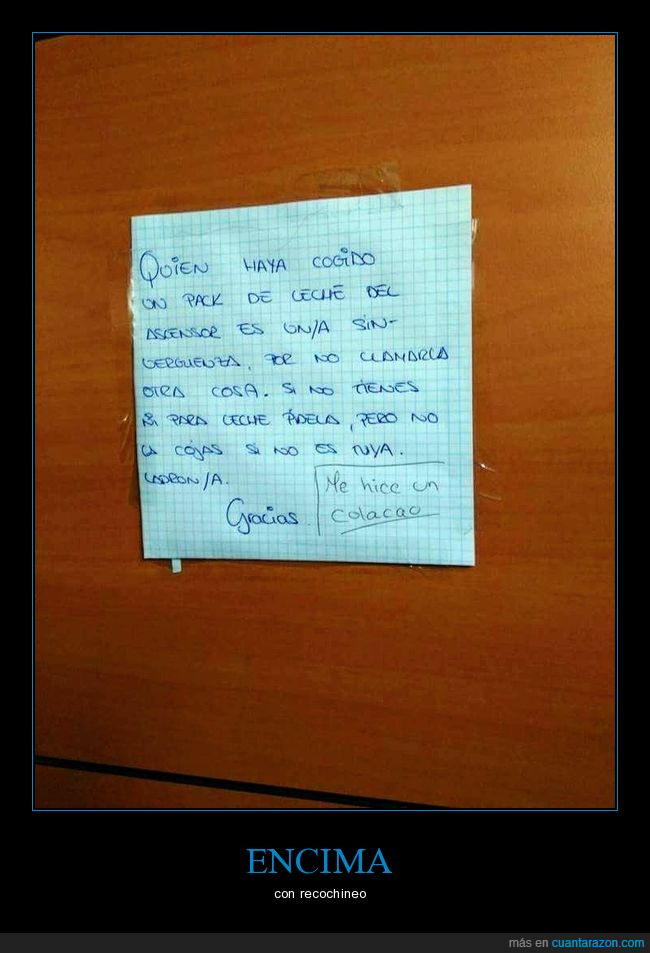 QUIEN HAYA COGIDO
UN PACK DE LECHE DEL
ASCENSOR ES UN/A SIN-
VERGUENZA, POR NO LLAMARLA
OTRA COSA. SI NO TIENES
NI PARA LECHE PIDELA, PERO NO
LA COJAS SI NO ES TUYA.
LADRON/A.
Gracias
Me hice un
colacao
ENCIMA
con recochineo
más en cuantarazon.com